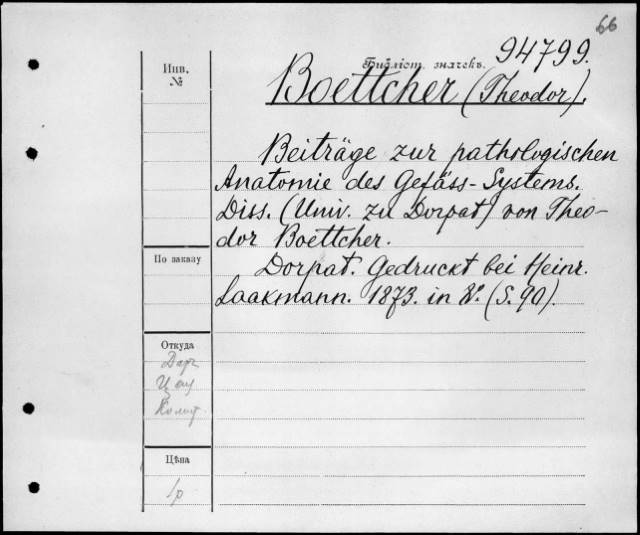 66
Инв.
№
Библіот. значекъ. 94799.
Boettcher (Theodor).
Beiträge zur pathologischen
Anatomie des Gefäss-Systems.
Diss. (Univ. zu Dorpat) von Theo-
dor Boettcher.
По заказу
Dorpat. Gedruckt bei Heinr.
Laakmann. 1873. in 8º. (S. 90).
Откуда
Даръ
Цѣна
1р